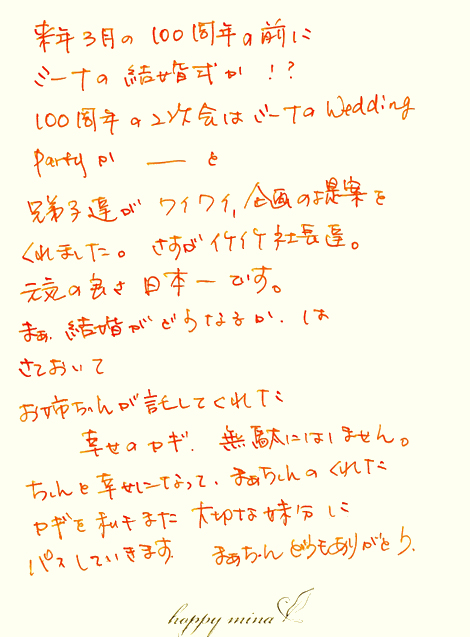 来年3月の100周年の前に
ミーナの結婚式か!?
100周年の2次会はミーナのWedding
Partyか ── と
兄弟子達がワイワイ,企画の提案を
くれました。さすがイケイケ社長達。
元気の良さ日本一です。
まぁ、結婚がどうなるか、は
さておいて
お姉ちゃんが託してくれた
幸せのカギ、無駄にはしません。
ちゃんと幸せになって、まぁちゃんのくれた
カギを私もまた大切な妹分に
パスしていきます。 まぁちゃんどうもありがとう。
happy mina